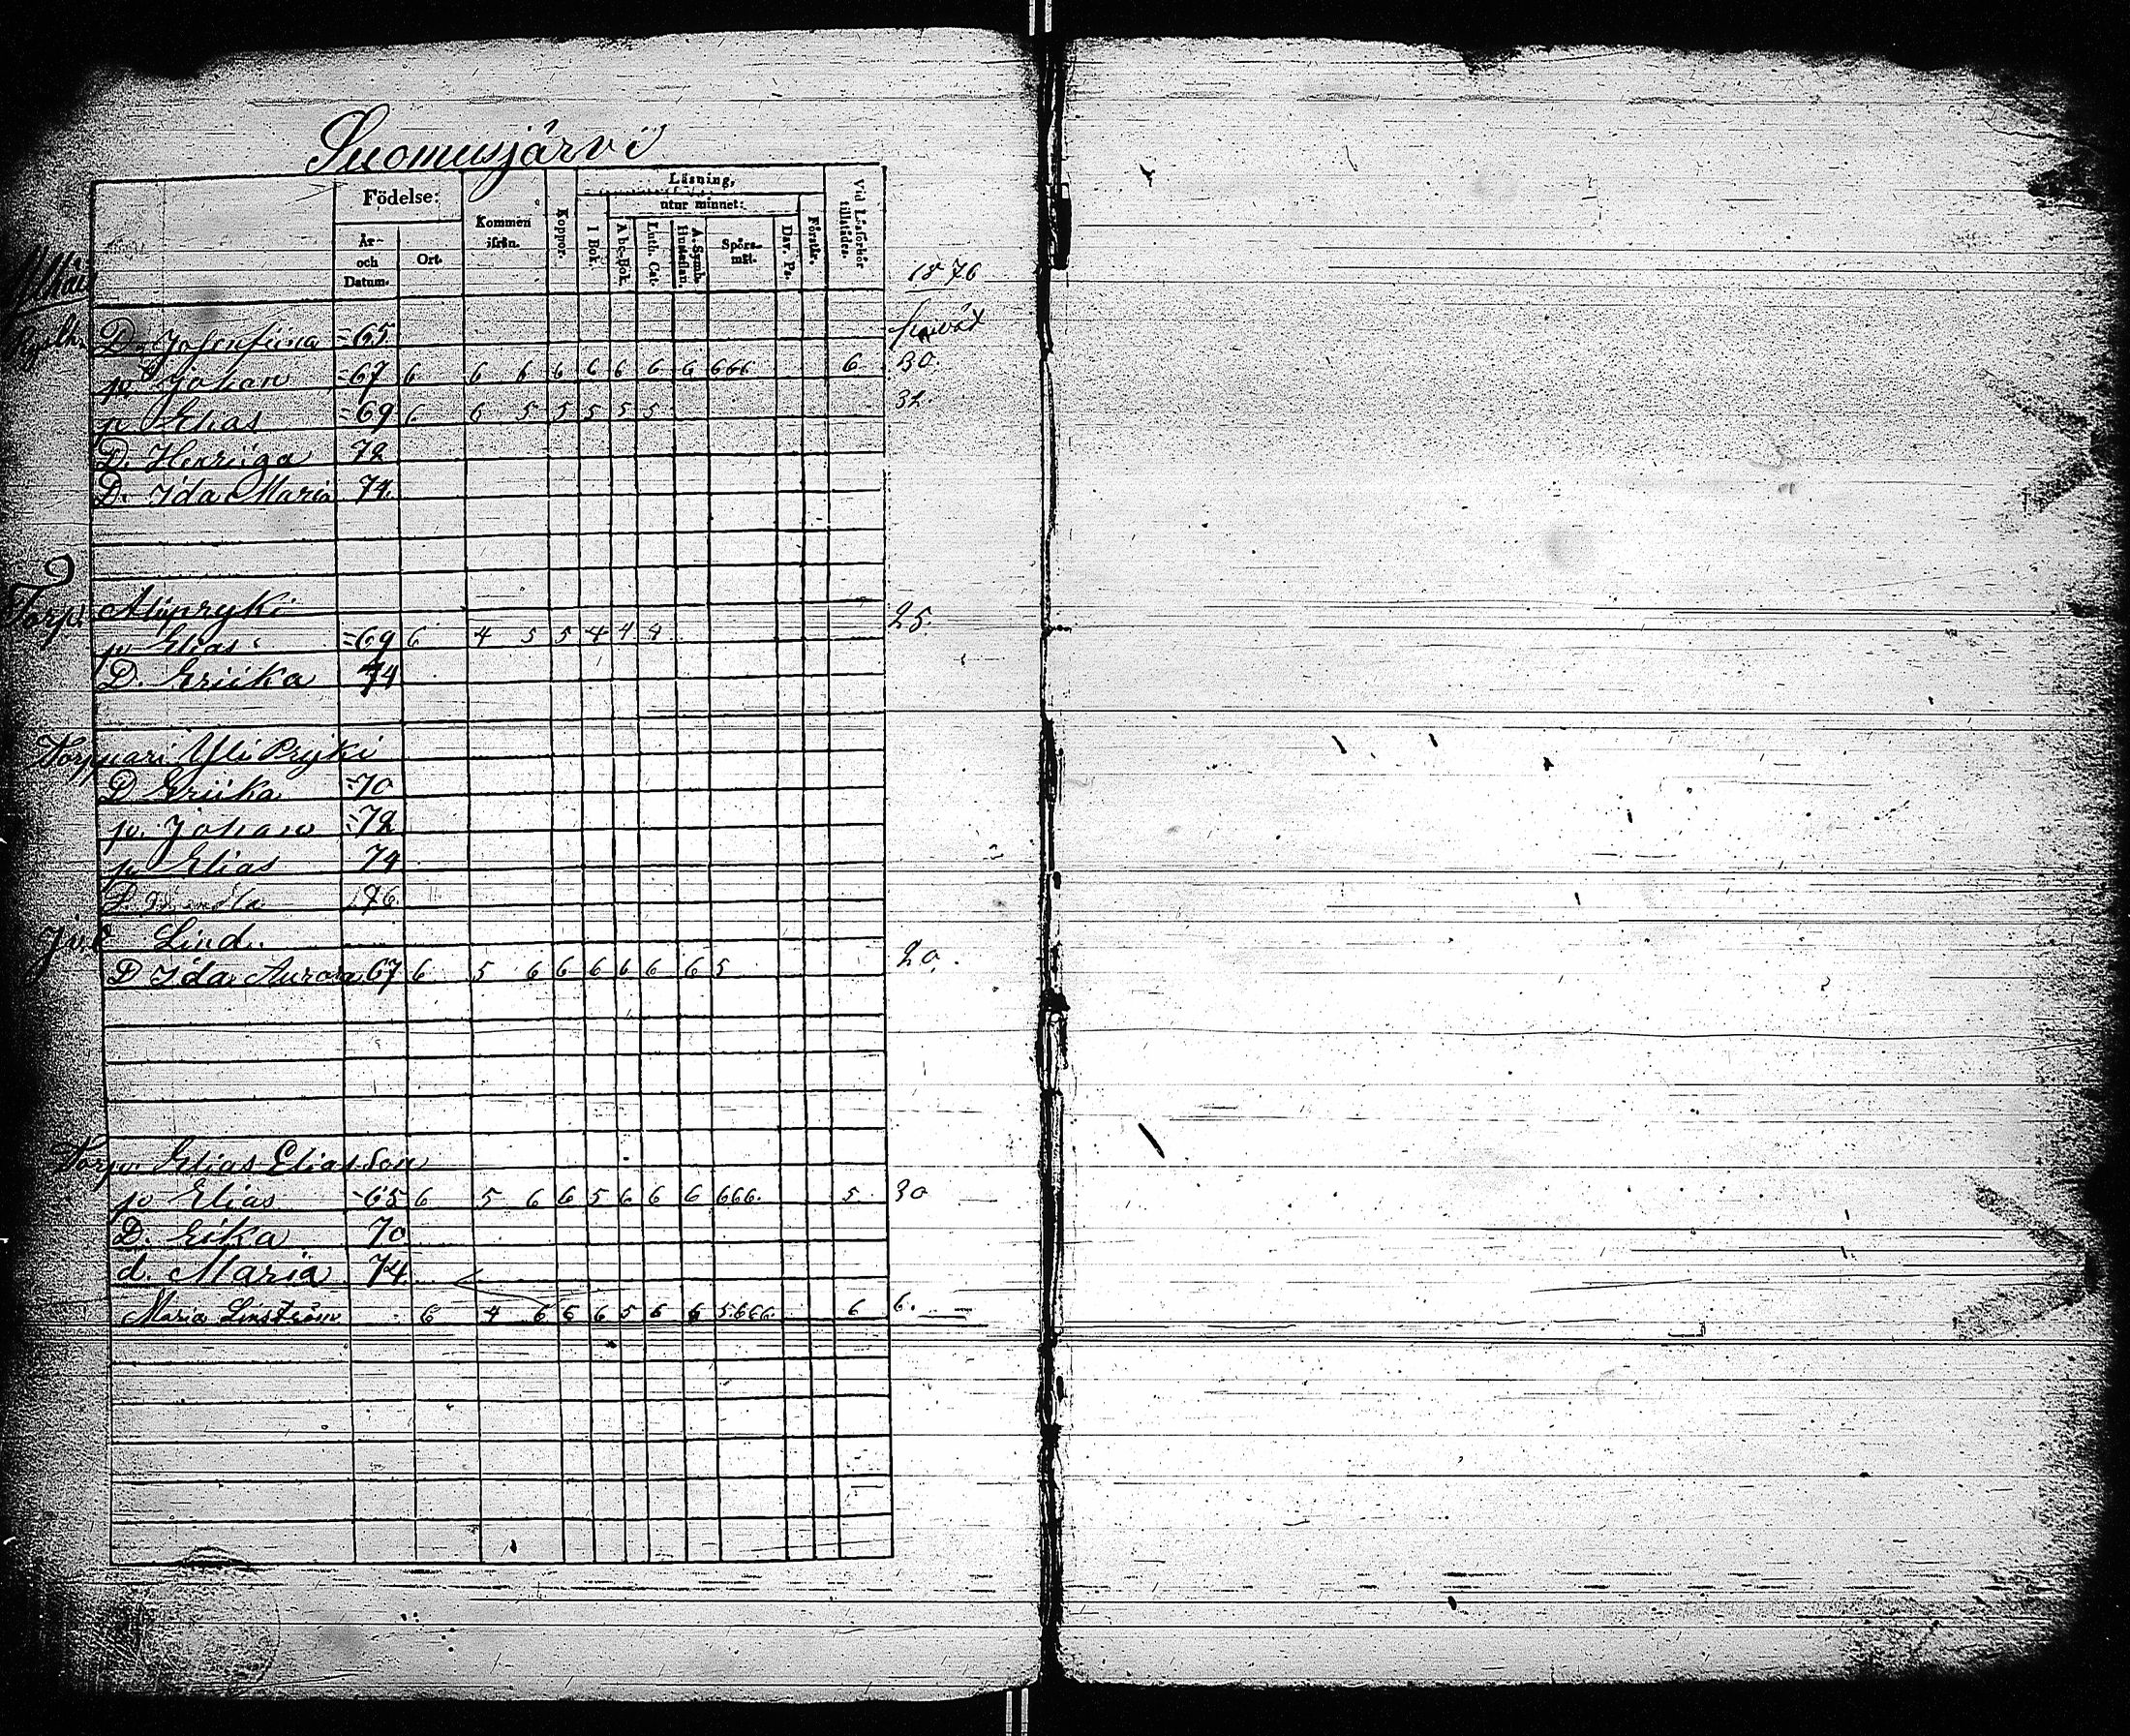 Suomusjärvi
Födelse: Kommen ifrån. Koppor. Läsning, utur minnet: Vid Läsförhör tillstädes.
År- och Datum. Ort. I Bok. Abc-Bok. Luth. Cat. A. Symb. Hustaflan. Spörs-mål. Dav. Ps. Förstår.
1876
D. Josefiina =65
p. Johan =67 6 6 6 6 6 6 6 6 666 6 30.
p Elias =69 6 6 5 5 5 5 5 32.
D. Henriga 72
D. Ida Maria 74.
Torp. Alipryki
p Elias =69 6 4 5 5 4 4 4 25.
D. Eriika 74
Torppari Yli Pryki
D Eriika =70
p. Johan =72
p Elias 74
D 76
Lind.
D Ida Aurora 67 6 5 6 6 6 6 6 6 5 20.
Torp. Elias Eliasson
p Elias -65 6 5 6 6 5 6 6 6 666. 5. 30
D. Erika 70
d. Maria 74
Maria Linström 6 4 6 6 6 5 6 6 5.666. 6 6.